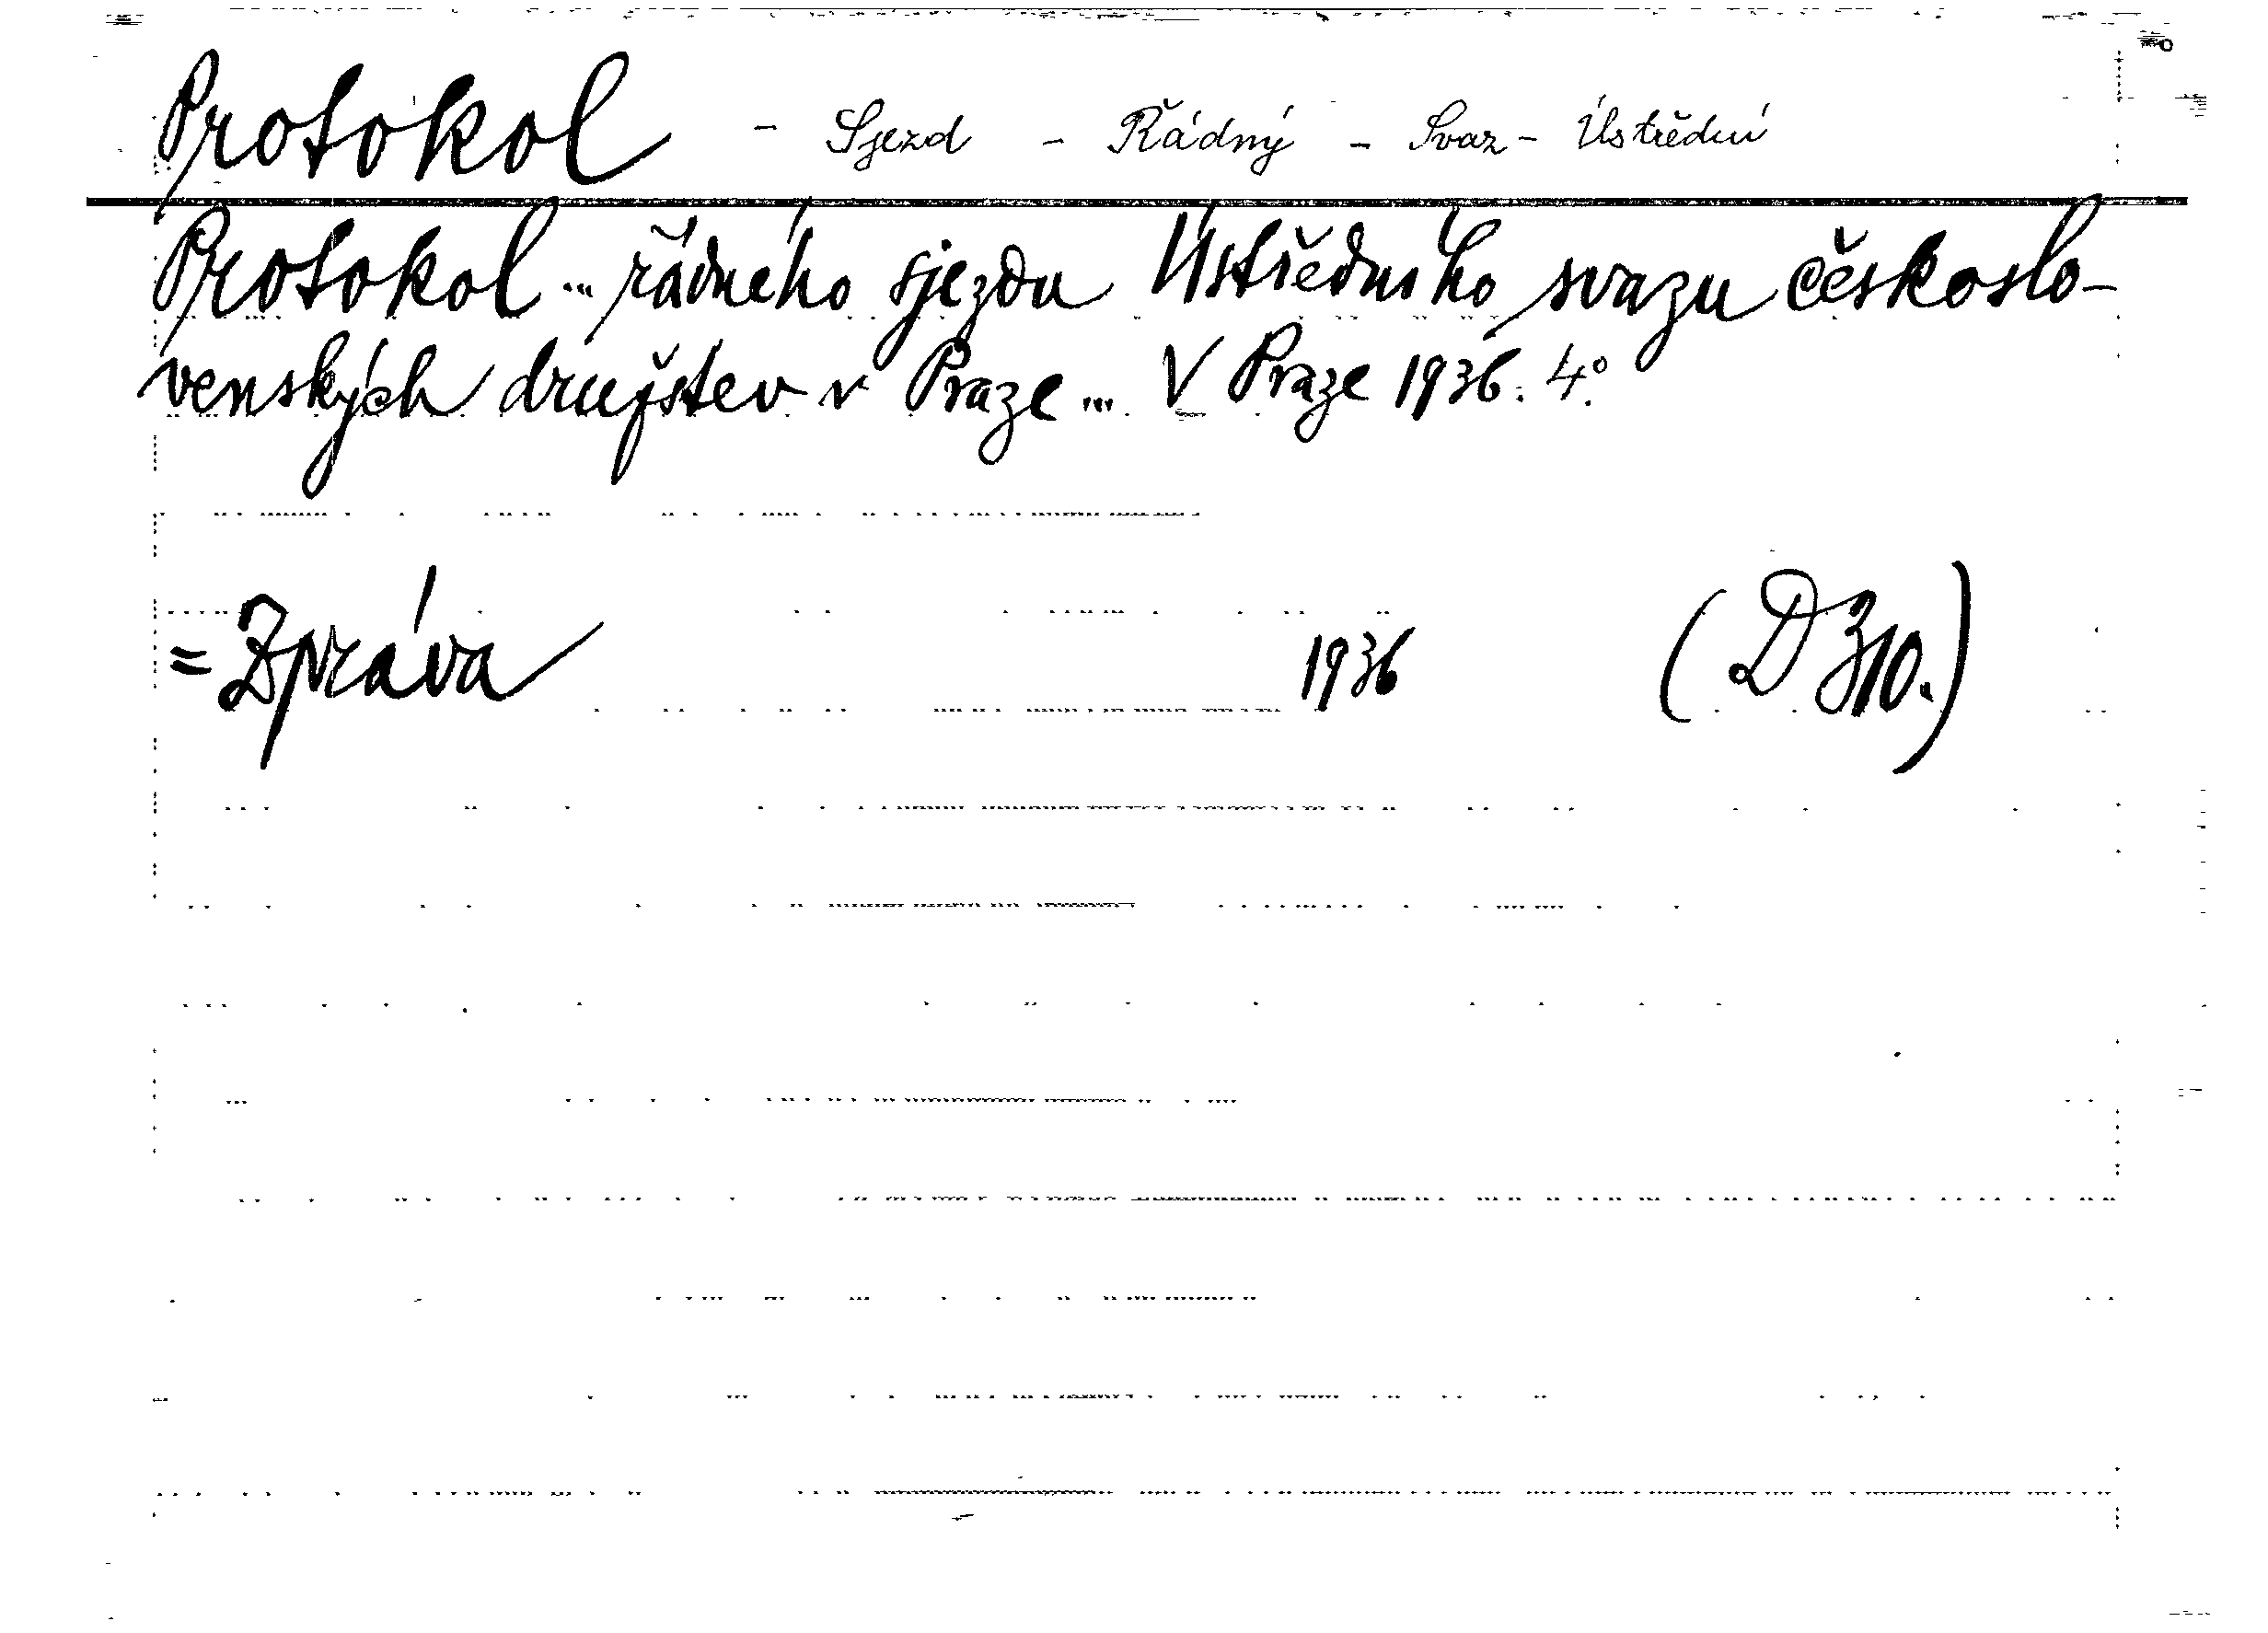 Protokol - Sjezd - Řádný - Svaz - Ústřední
Protokol ... řádného sjezdu Ústředního svazu českoslo-
venských družstev v Praze ... V Praze 1936. 4°.
= Zpráva 1936 (D 310.)